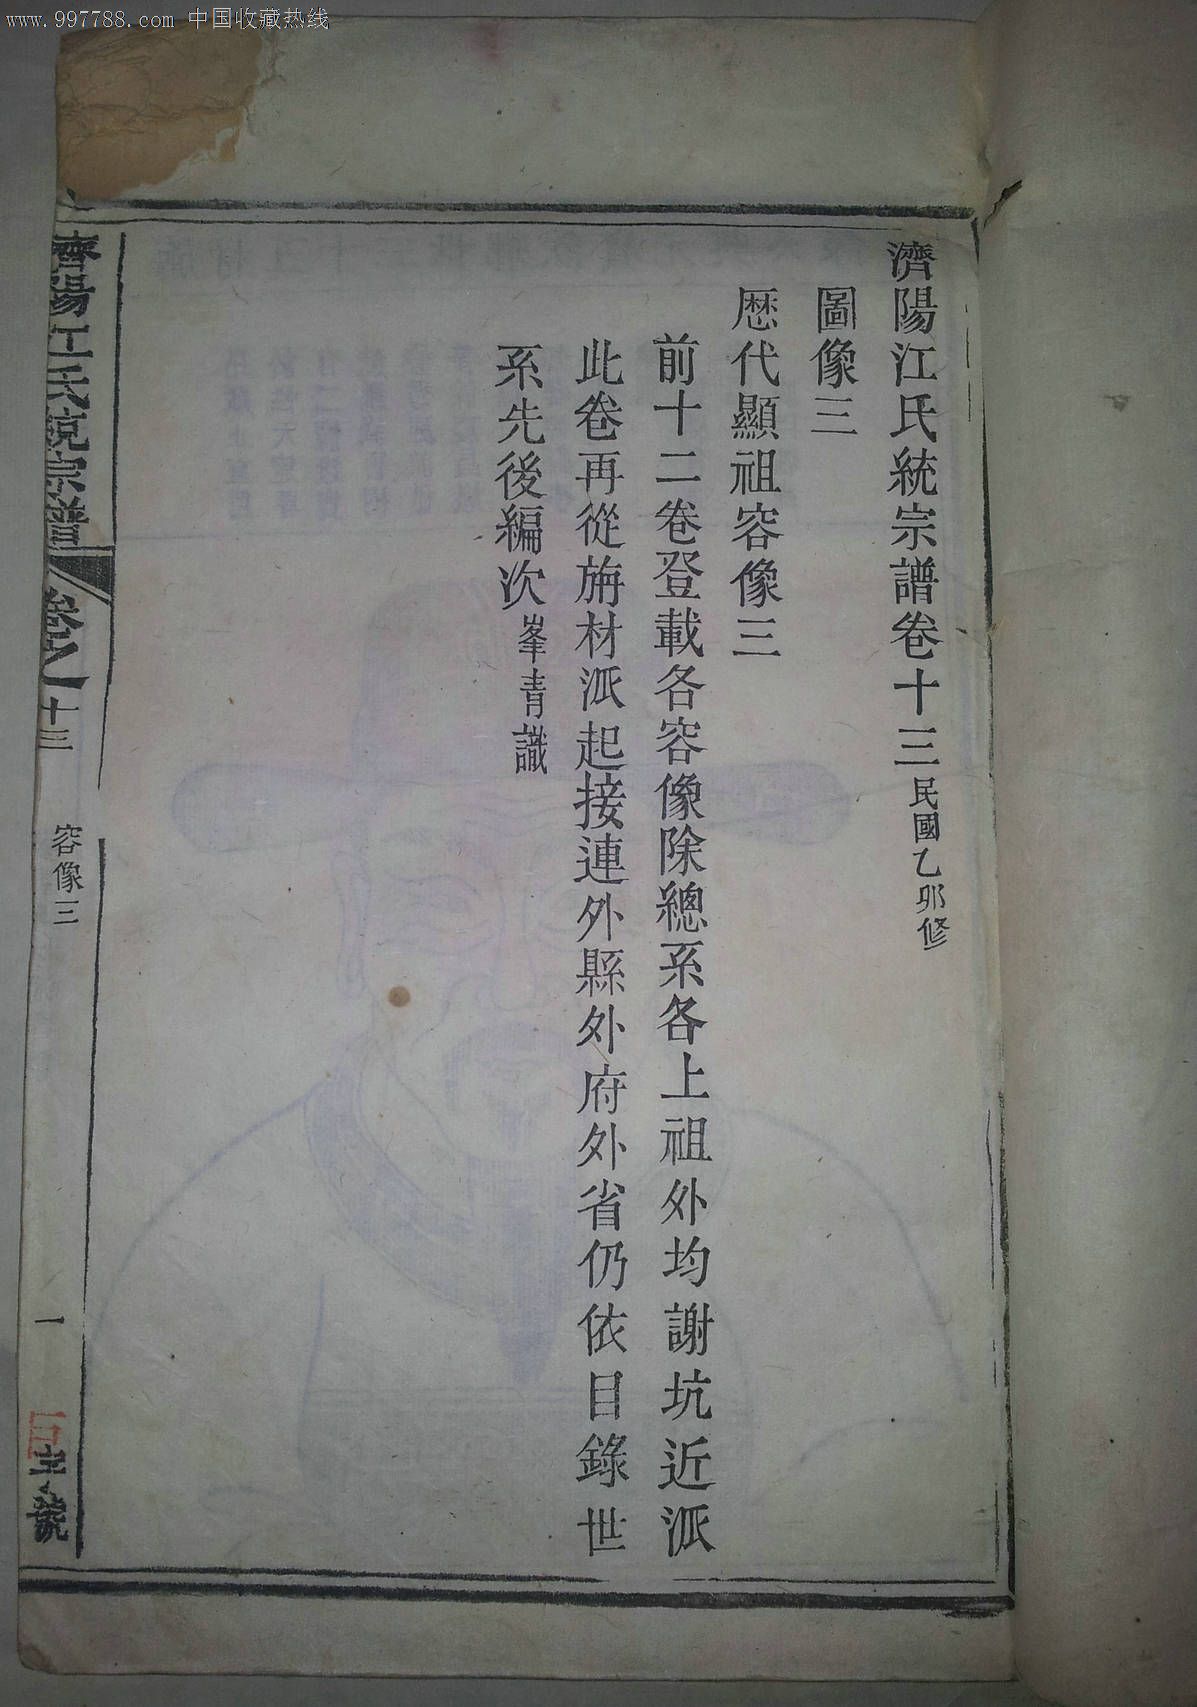 www.997788.com 中国收藏热线
濟陽江氏統宗譜卷十三民國乙夘修
圖像三
歷代顯祖容像三
前十二卷登載各容像除總系各上祖外均謝坑近派
此卷再從旃材派起接連外縣外府外省仍依目錄世
系先後編次峯青識
濟陽江氏統宗譜
卷之十三
容像三
一
字號